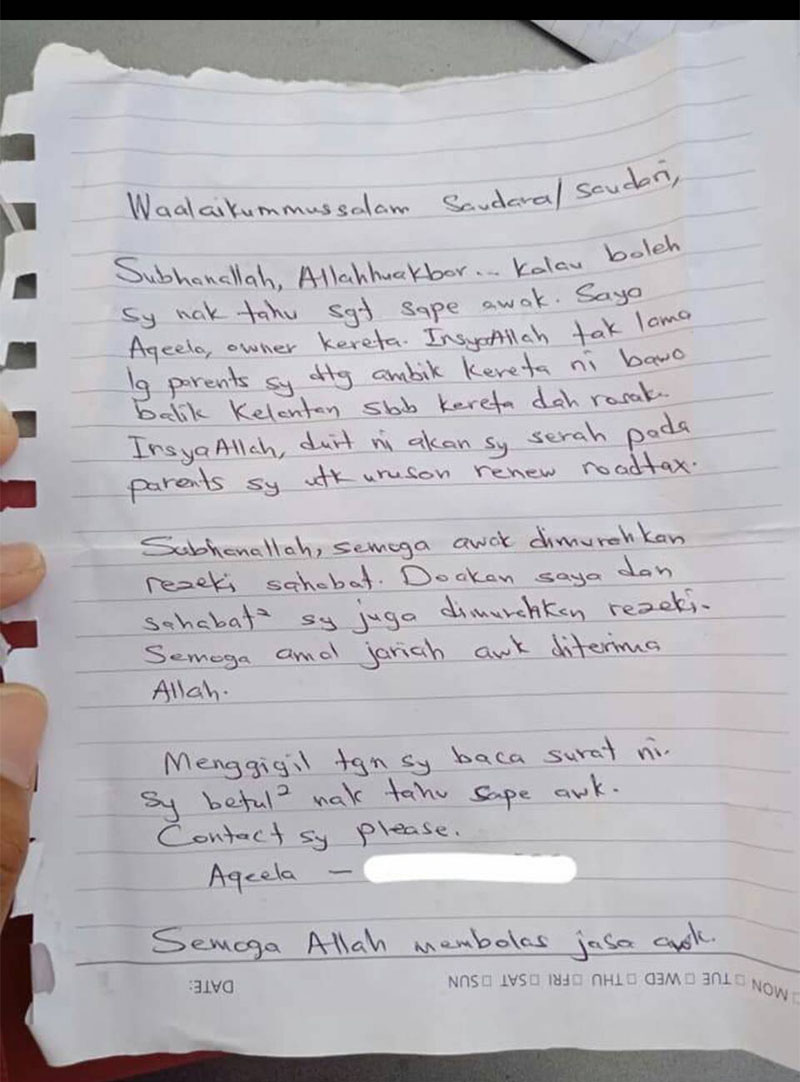 Waalaikummussalam Saudara/Saudari,
Subhanallah, Allahhuakbar... Kalau boleh
sy nak tahu sgt sape awak. Saya
Aqeela, owner kereta. InsyaAllah tak lama
lg parents sy dtg ambik kereta ni bawa
balik Kelantan sbb kereta dah rosak.
InsyaAllah, duit ni akan sy serah pada
parents sy utk urusan renew roadtax.
Subhanallah, semoga awak dimurahkan
rezeki sahabat. Doakan saya dan
sahabat² sy juga dimurahkan rezeki.
Semoga amal jariah awk diterima
Allah.
Menggigil tgn sy baca surat ni.
Sy betul² nak tahu sape awk.
Contact sy please.
Aqeela —
Semoga Allah membalas jasa awak.
DATE: MON TUE WED THU FRI SAT SUN